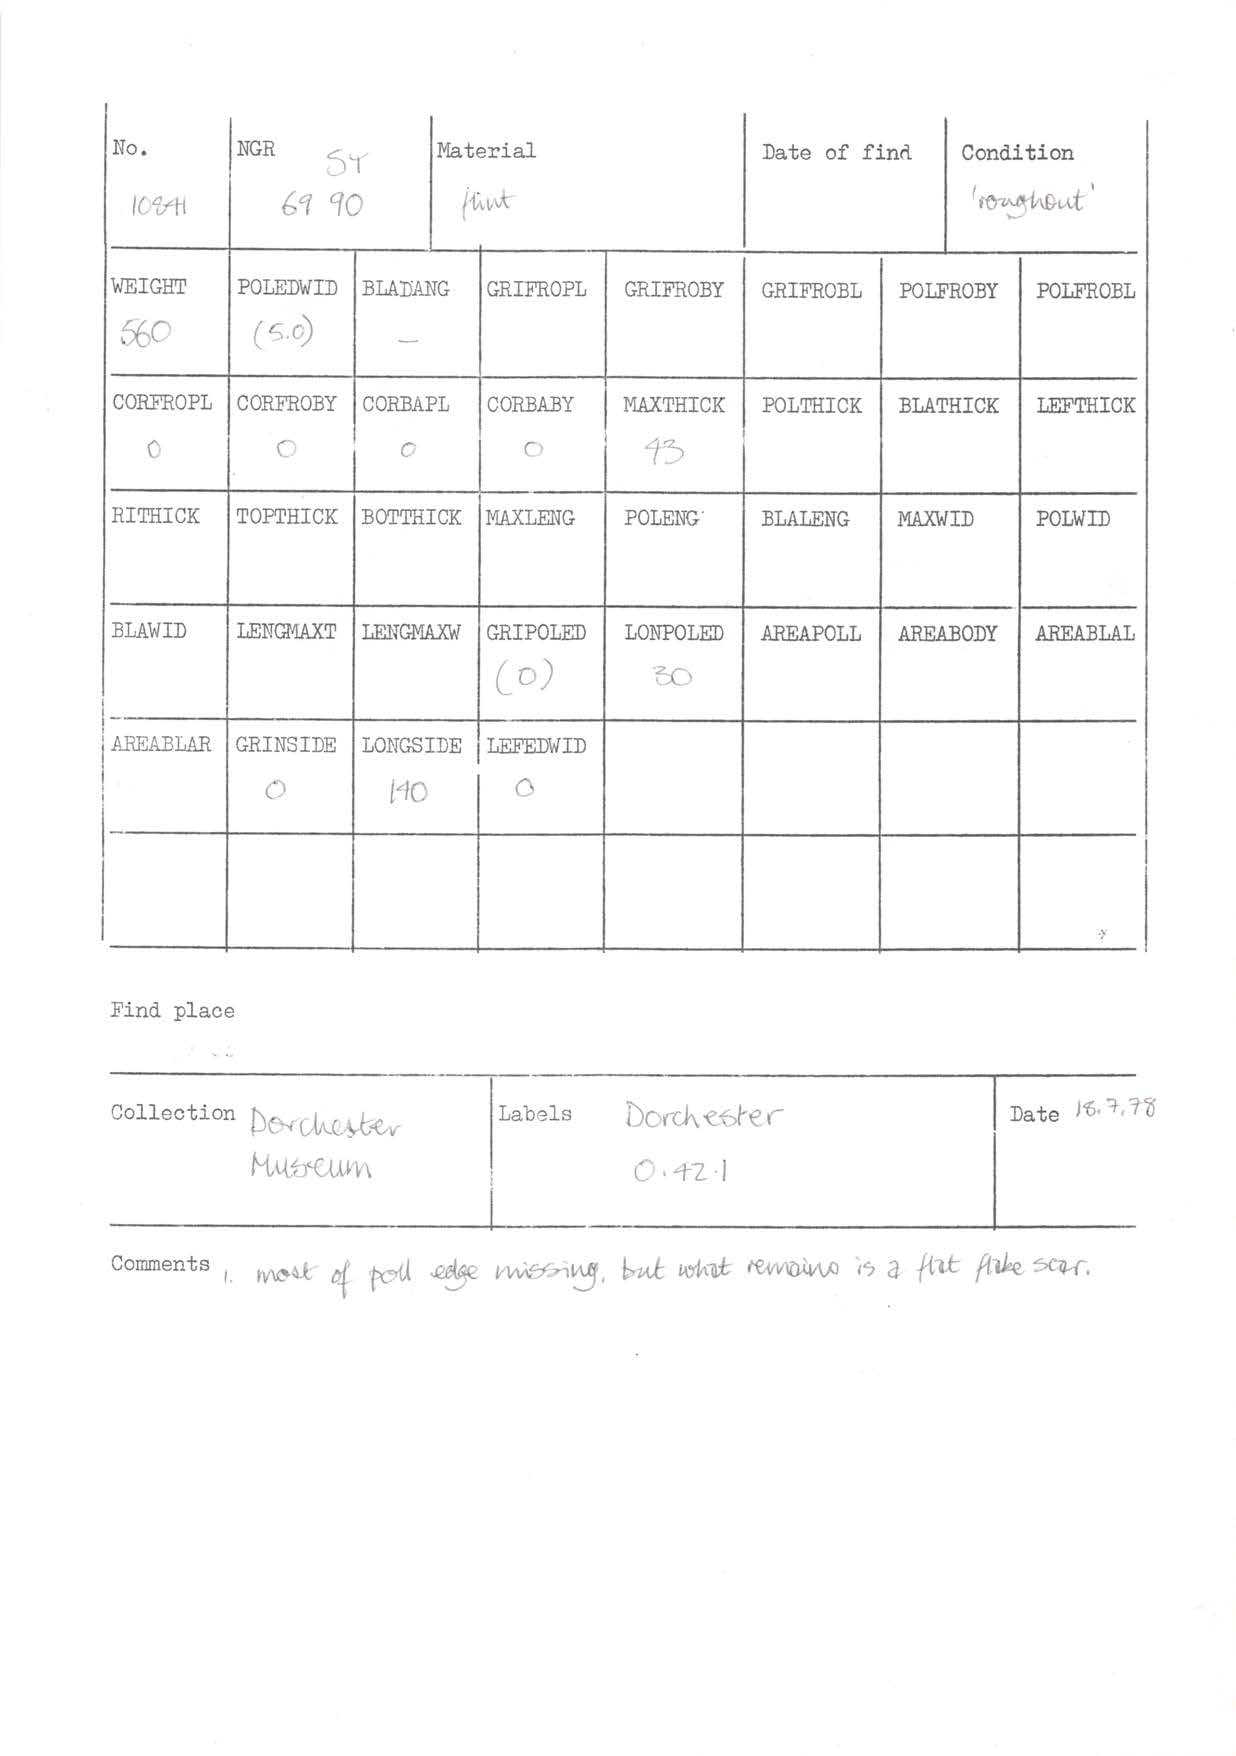 No. NGR SY Material Date of find Condition
10841 69 90 flint 'roughout'
WEIGHT POLEDWID BLADANG GRIFROPL GRIFROBY GRIFROBL POLFROBY POLFROBL
560 (5.0) —
CORFROPL CORFROBY CORBAPL CORBABY MAXTHICK POLTHICK BLATHICK LEFTHICK
0 0 0 0 43
RITHICK TOPTHICK BOTTHICK MAXLENG POLENG BLALENG MAXWID POLWID
BLAWID LENGMAXT LENGMAXW GRIPOLED LONPOLED AREAPOLL AREABODY AREABLAL
(0) 30
AREABLAR GRINSIDE LONGSIDE LEFEDWID
0 140 0
Find place
Collection Dorchester Labels Dorchester Date 18.7.78
Museum 0.42.1
Comments 1. most of poll edge missing, but what remains is a flat flake scar.